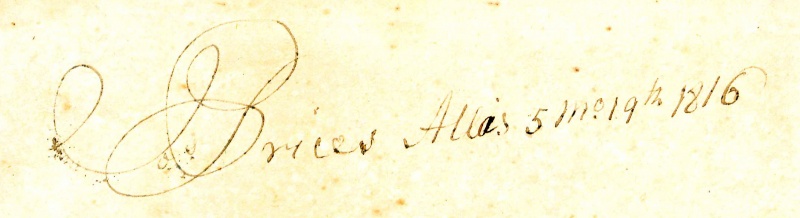 Prices Allis 5 mo. 19th 1816